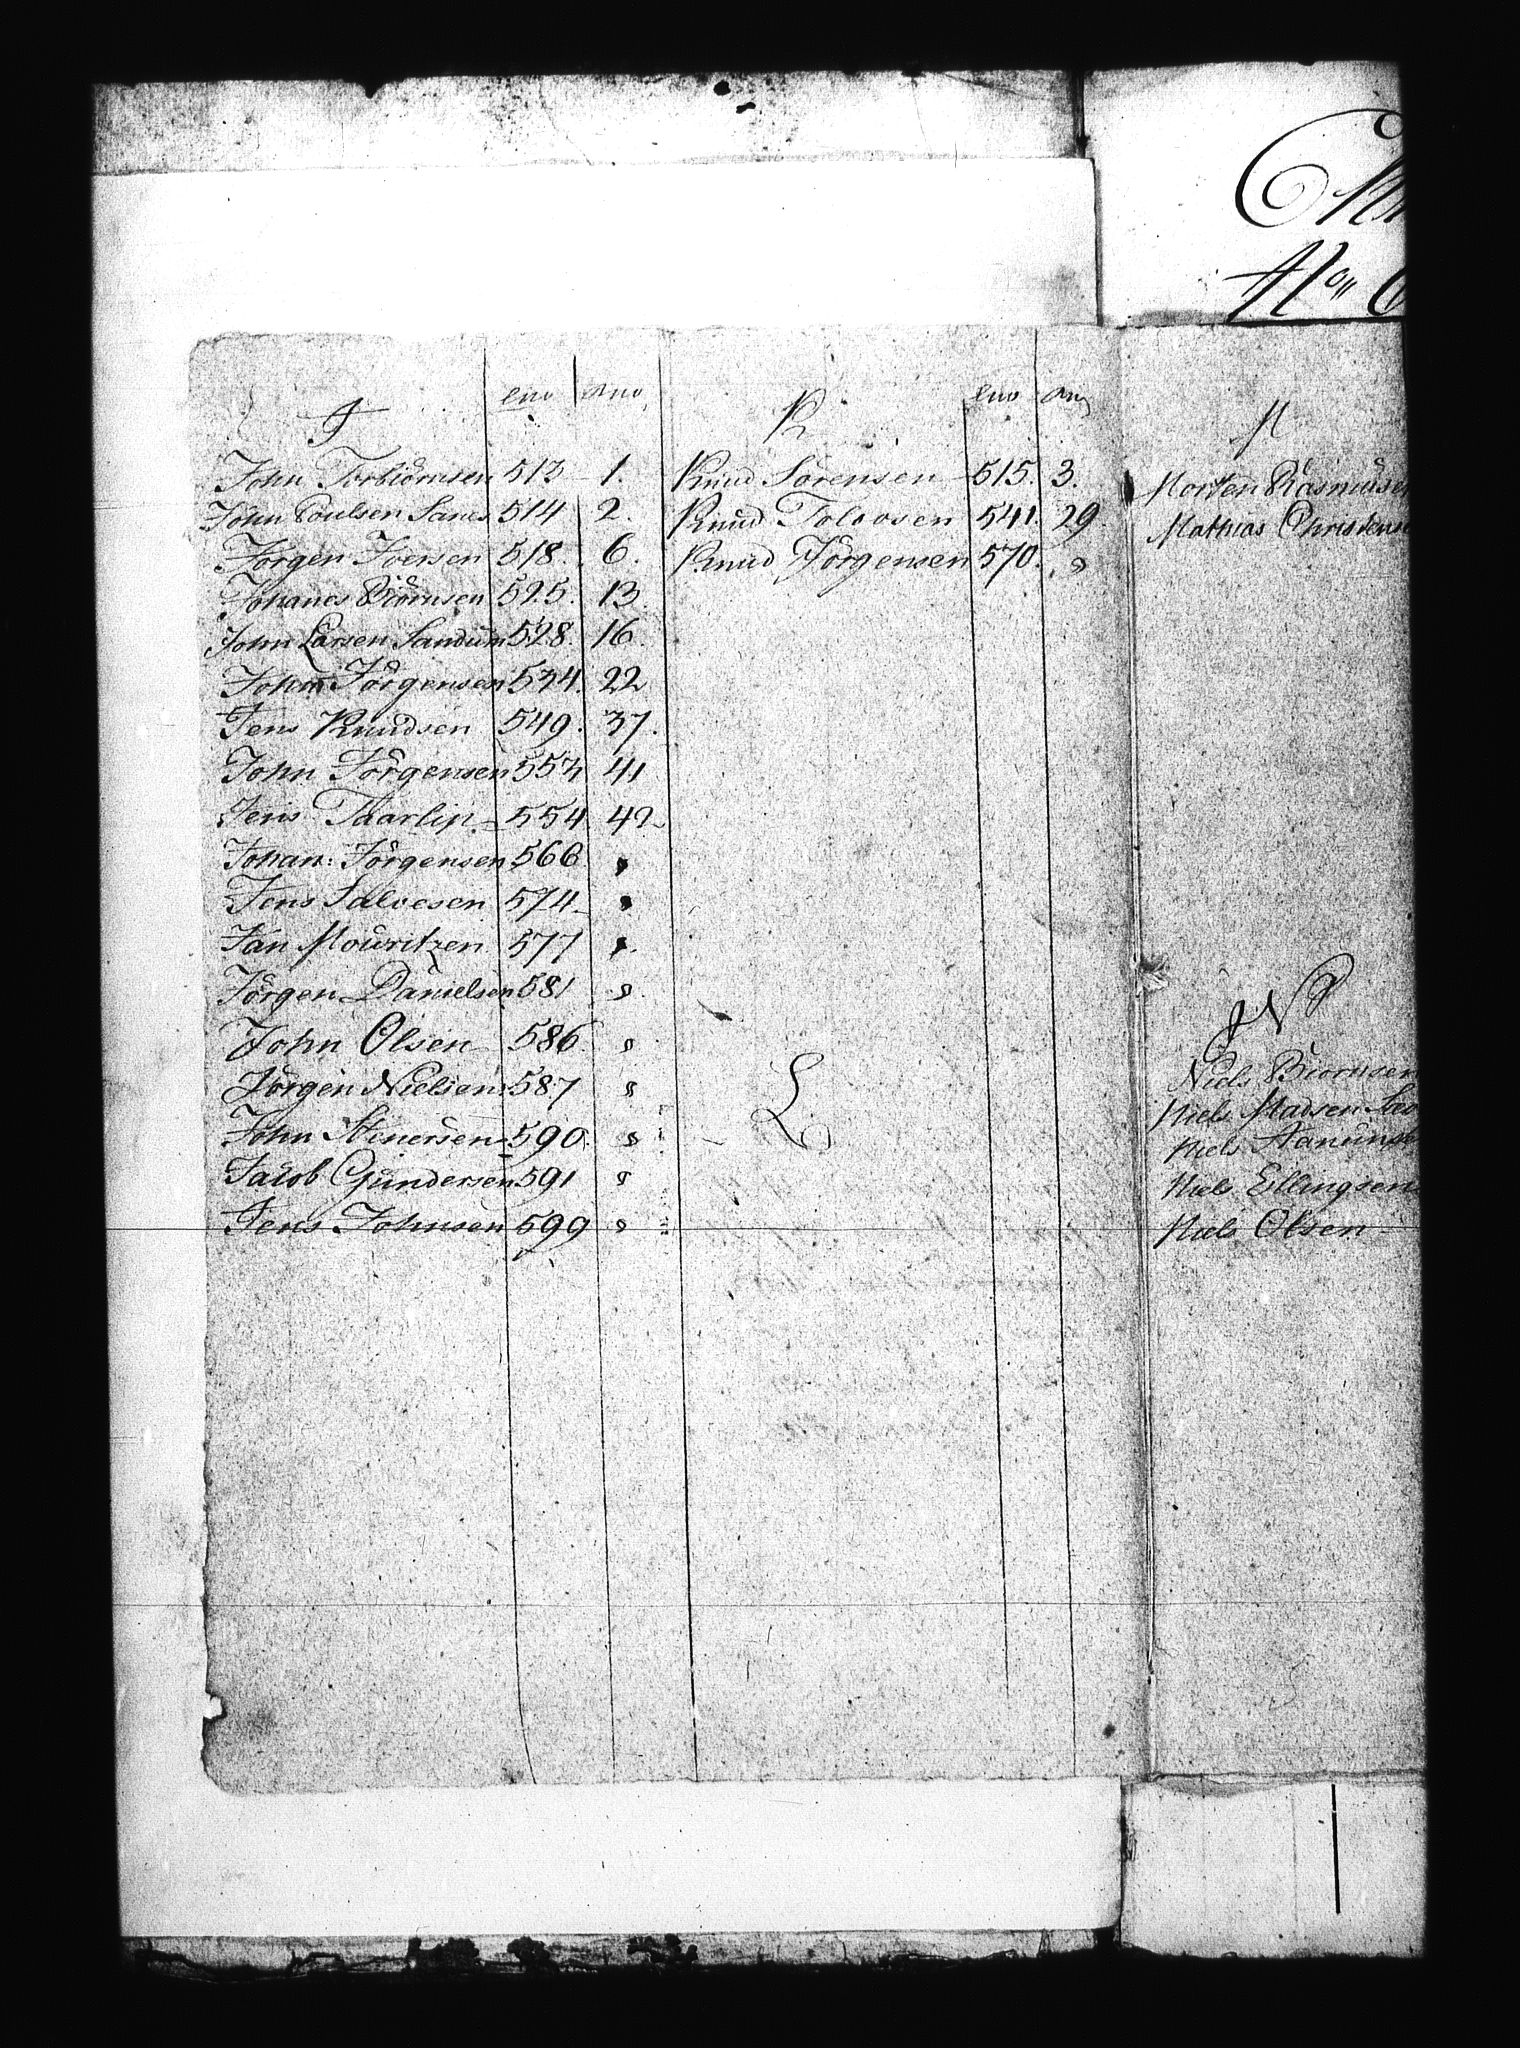 J
John Torbiörnsen 513 1.
John Poulsen 514 2.
Jørgen Iversen 518. 6.
Johanes Biörnsen 525. 13.
John Larsen Sandum 528. 16.
Johan Jörgensen 534. 22
Jens Knudsen 549. 37.
John Jörgensen 553 41
Jens Taarlip 554 42
Johan: Jörgensen 566 "
Jens Salvesen 574 "
Jan Mouritzen 577 "
Jörgen Danielsen 581 "
John Olsen 586. "
Jörgen Nielsen 587 "
John Stenersen 590. "
Jacob Gundersen 591 "
Jens Johnsen 599 "
K
Knud Sörensen 515. 3.
Knud Tolvosen 541. 29.
Knud Jörgensen 570. "
L
M
Morten Rasmusen
Mathias Christens
N
Niels Biornsen
Niels Madsen
Niels Aanuns
Niels Ellingsen
Niels Olsen